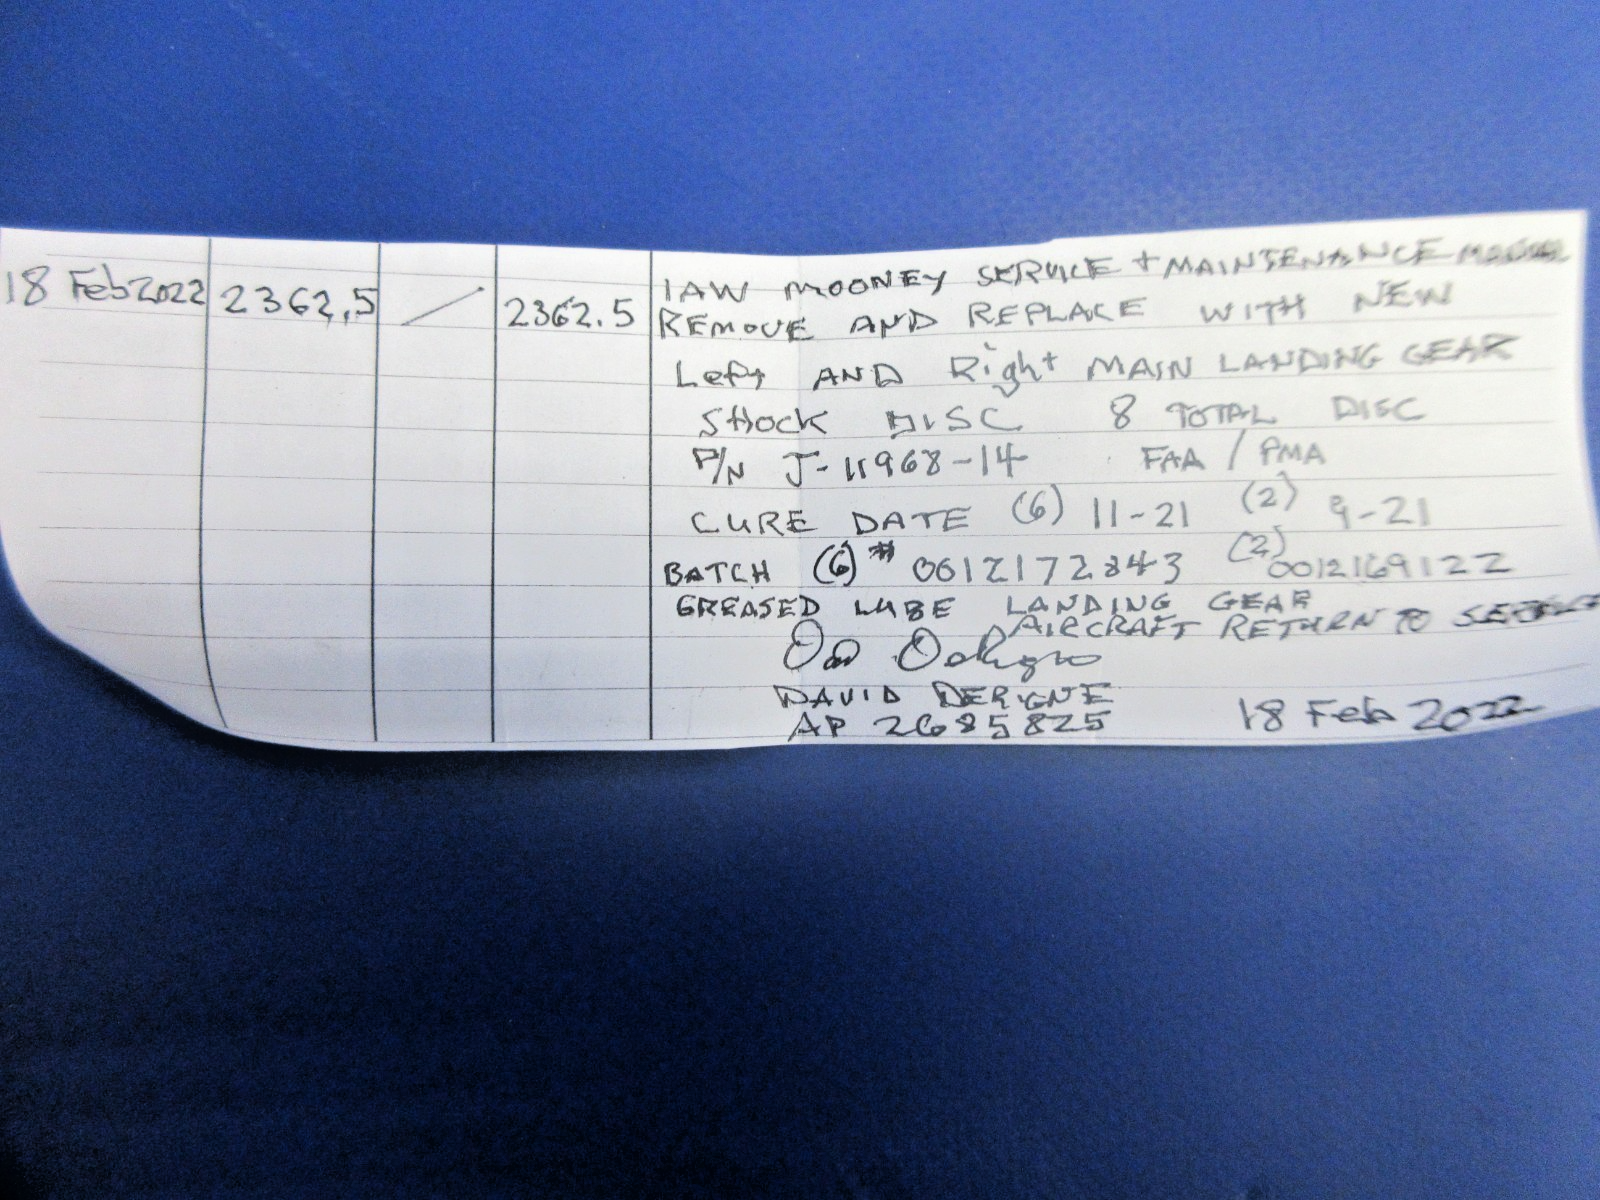 18 Feb 2022 2362.5 / 2362.5 IAW MOONEY SERVICE + MAINTENANCE MANUAL
REMOVE AND REPLACE WITH NEW
Left AND Right MAIN LANDING GEAR
SHOCK DISC 8 TOTAL DISC
P/N J-11968-14 FAA / PMA
CURE DATE (6) 11-21 (2) 9-21
BATCH (6) # 0012172843 (2) 0012169122
GREASED LUBE LANDING GEAR
AIRCRAFT RETURN TO SERVICE
DAVID DERIGNE
AP 2685825 18 Feb 2022